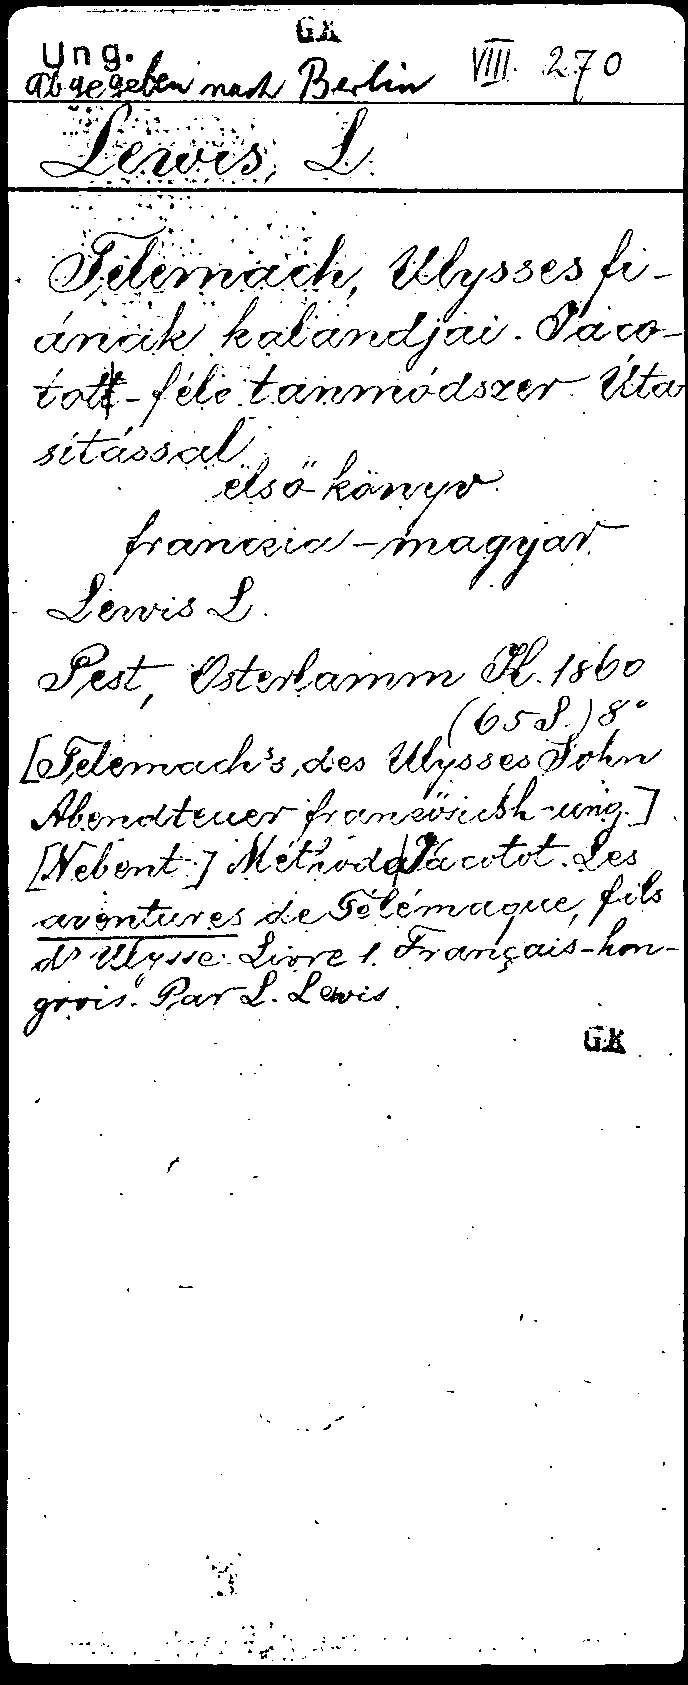 GK
Ung.
abgegeben nach Berlin VIII. 270
Lewis, L.
Telemach, Ulysses fi-
ának kalandjai. Jaco-
tott-féle tanmódszer. Úta
sitással
első könyv
franczia-magyar.
Lewis L.
Pest, Osterlamm K. 1860
(65 S.) 8°
[Telemach's, des Ulysses Sohn
Abendteuer französisch-ung.]
[Nebent.] Méthode Jacotot. Les
aventures de Télémaque, fils
d'Ulysse. Livre 1. Français-hon-
grois. Par L. Lewis.
GK